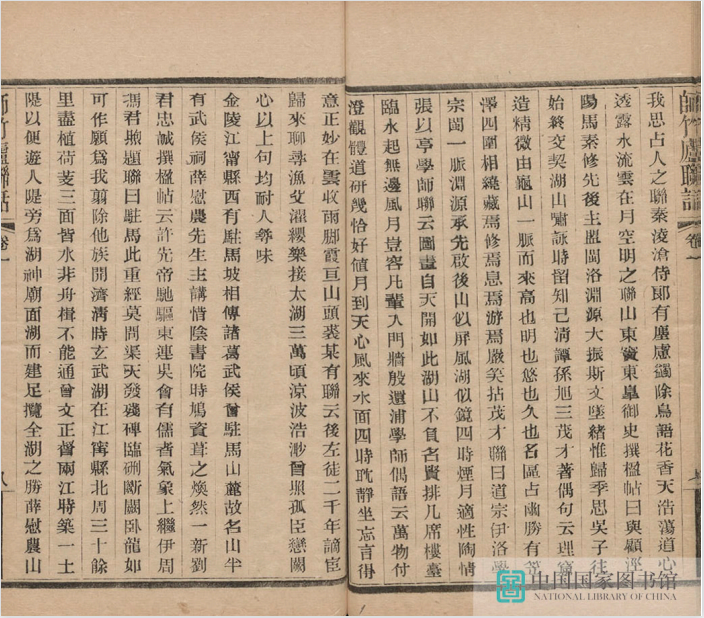 師竹廬聯話 卷一 七
我思古人之聯秦淩滄侍郎有塵慮蠲除鳥語花香天浩蕩道心
透露水流雲在月空明之聯山東竇東皋御史撰楹帖曰與顧涇
陽馬素修先後主盟閩洛淵源大振斯文墜緒惟歸季思吳子往
始終交契湖山嘯詠時留知己清譚孫旭三茂才著偶句云理窮
造精微由龜山一脈而來高也明也悠也久也名區占幽勝有
澤四圍相繞藏焉修焉息焉游焉嚴笑拈茂才聯曰道宗伊洛學
宗閩一脈淵源承先啟後山似屏風湖似鏡四時煙月適性陶情
張以亭學師聯云圖畫自天開如此湖山不負名賢排几席樓臺
臨水起無邊風月豈容凡輩入門牆殷還浦學師偶語云萬物付
澄觀體道研幾恰好値月到天心風來水面四時耽靜坐忘言得
意正妙在雲收雨腳霞亘山頭裘某有聯云後左徒二千年謫宦
歸來聊尋漁父濯纓樂接太湖三萬頃涼波浩渺曾照孤臣戀闕
心以上句均耐人尋味
金陵江甯縣西有駐馬坡相傳諸葛武侯曾駐馬山麓故名山半
有武侯祠薛慰農先生主講惜陰書院時鳩資葺之煥然一新劉
君忠誠撰楹帖云許先帝馳驅東連吳會有儒者氣象上繼伊周
馮君題聯曰駐馬此重經莫問渠天發殘碑臨硎斷闕臥龍如
可作願爲我翦除他族開濟清時玄武湖在江甯縣北周三十餘
里盡植荷芰三面皆水非舟楫不能通曾文正督兩江時築一土
隄以便遊人隄旁爲湖神廟面湖而建足攬全湖之勝薛慰農山
師竹廬聯話 卷一 八
中国国家图书馆
NATIONAL LIBRARY OF CHINA